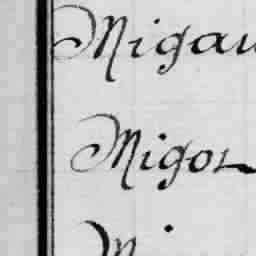 Migau
Migon